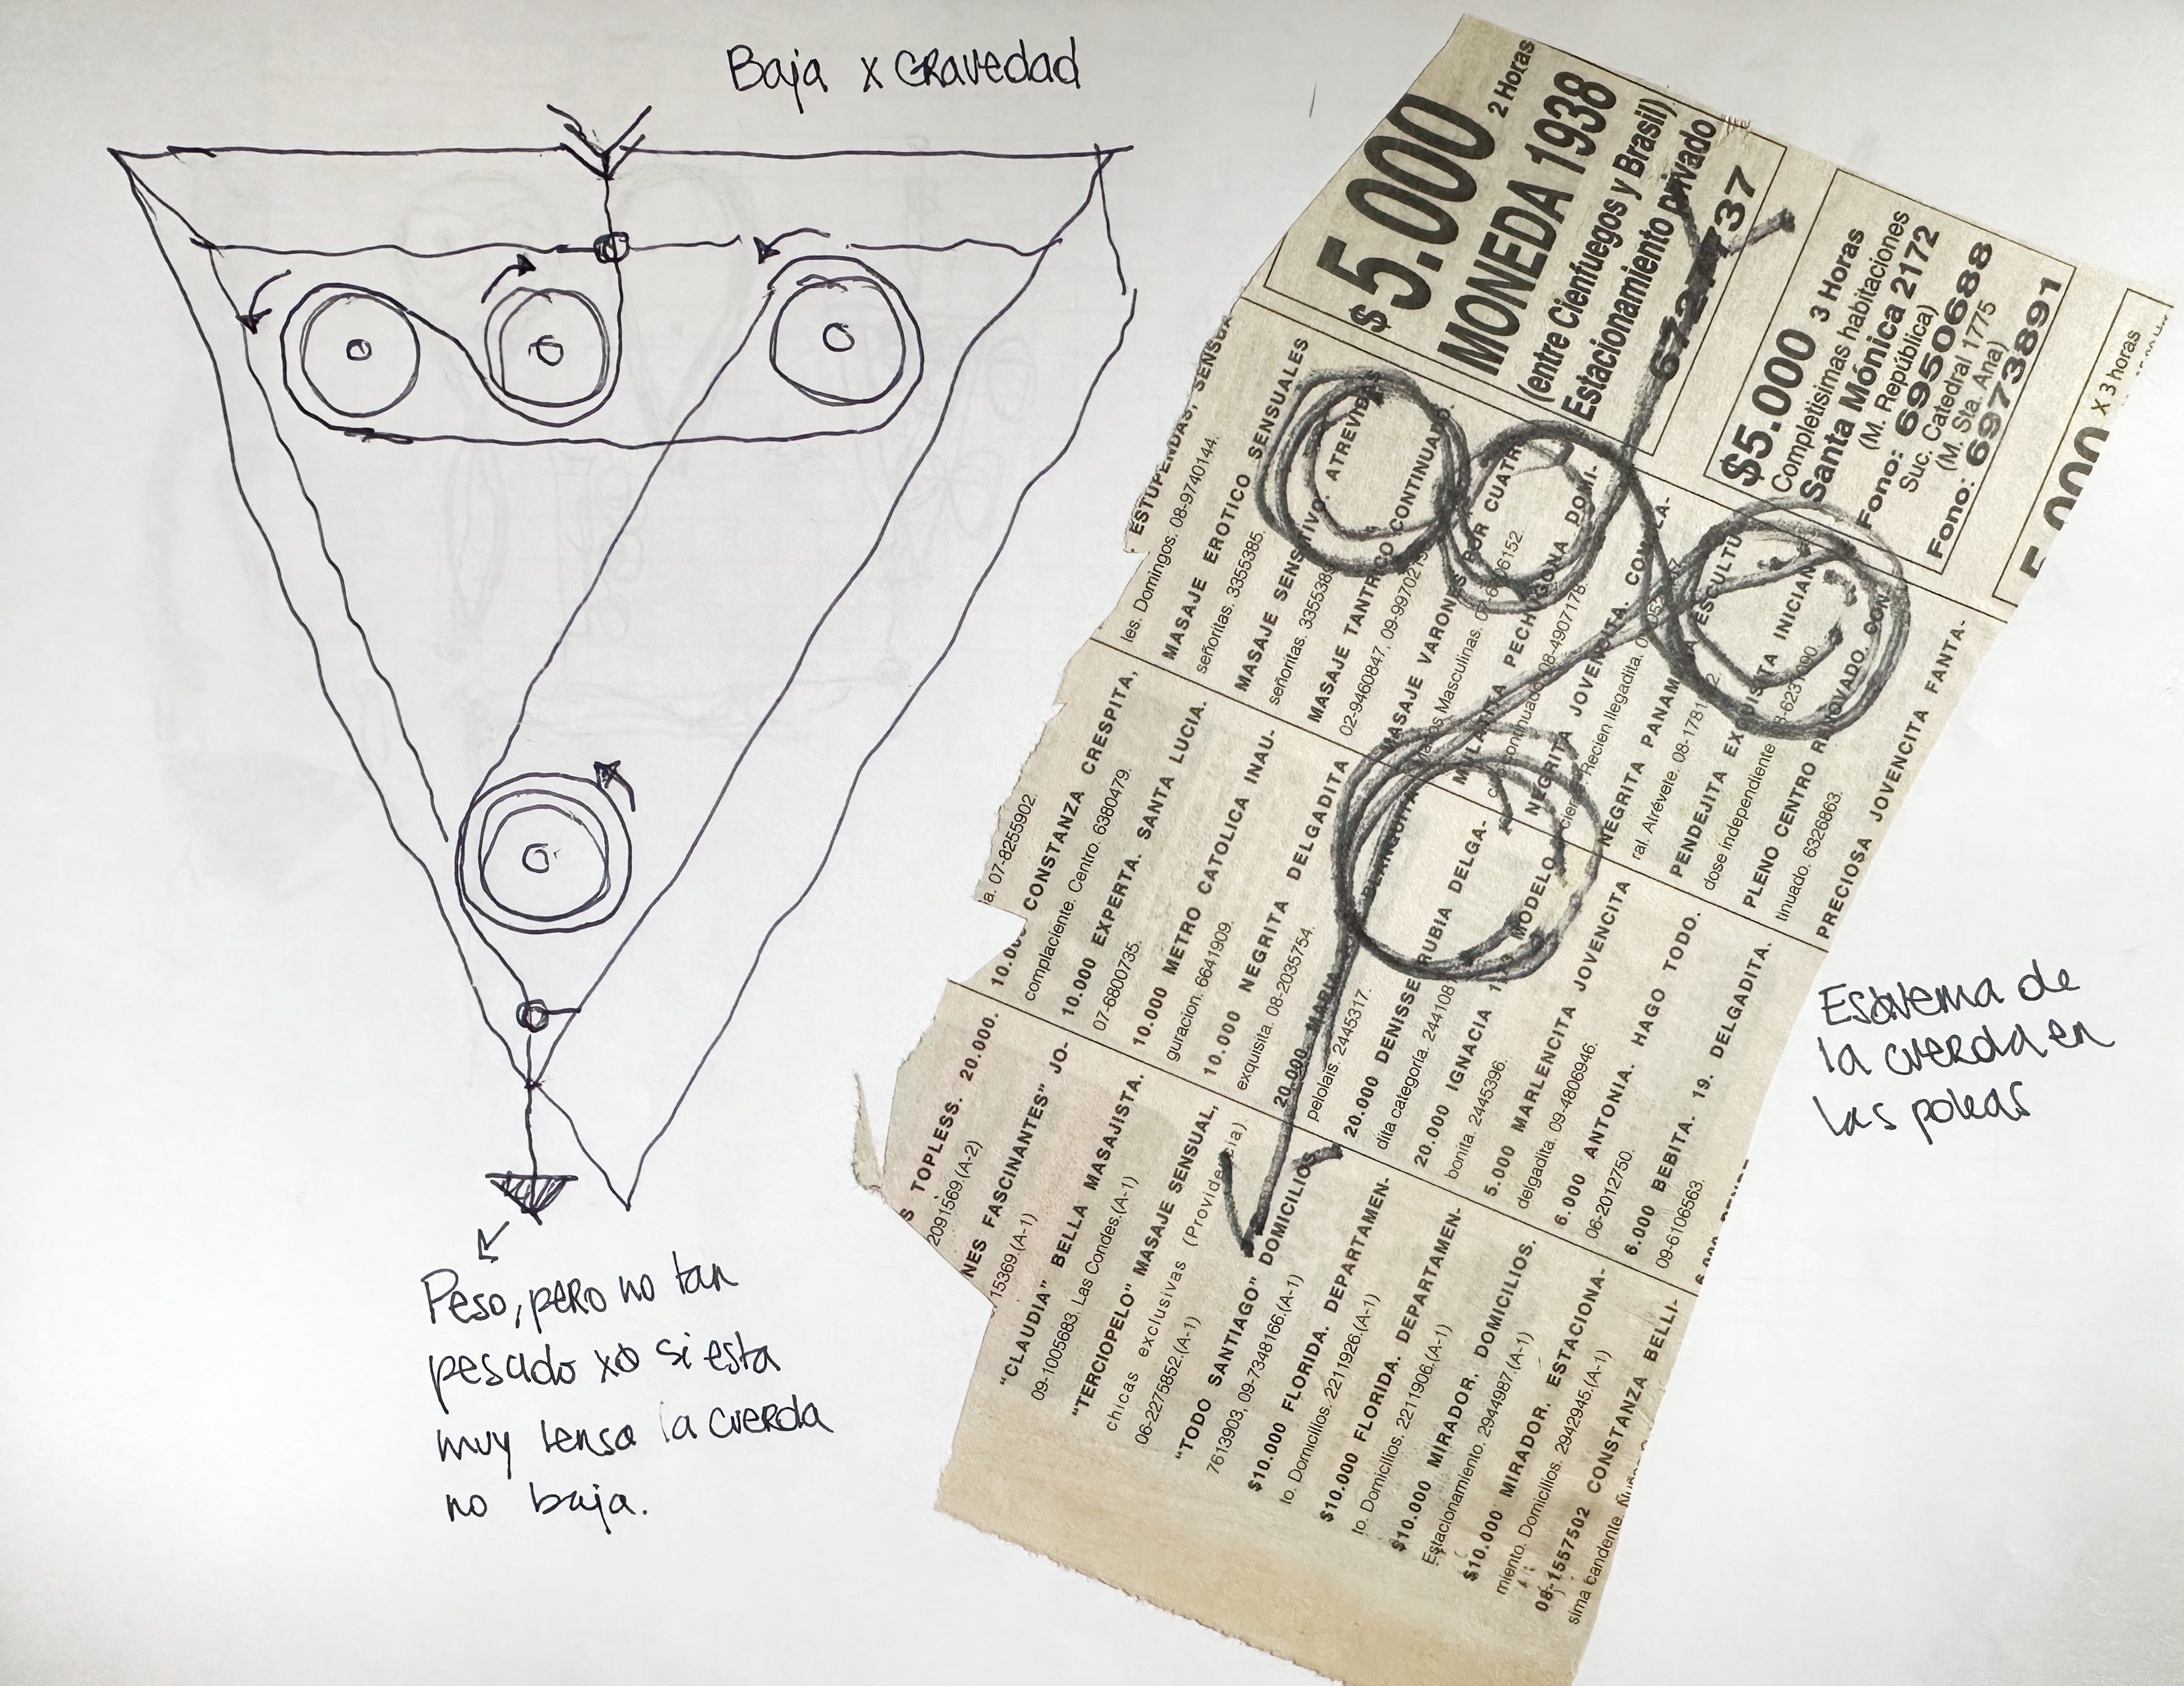 Baja x Gravedad
Peso, pero no tan
pesado xq si esta
muy tensa la cuerda
no baja.
Esquema de
la cuerda en
las poleas
$5.000 2 Horas
MONEDA 1938
(entre Cienfuegos y Brasil)
Estacionamiento privado
6727737
$5.000 3 Horas
Completisimas habitaciones
Santa Mónica 2172
(M. República)
Fono: 6950688
Suc. Catedral 1775
(M. Sta. Ana)
Fono: 6973891
5.000 x 3 horas
ESTUPENDAS, SENSUA
les. Domingos. 08-9740144.
MASAJE EROTICO SENSUALES
señoritas. 3355385.
MASAJE SENSITIVO. ATREVIDAS
señoritas. 3355385
MASAJE TANTRICO CONTINUADO.
02-9460847, 09-997021
MASAJE VARONES POR CUATRO
Masculinas.
MULATITA PECHUGONA DOMI-
continuado 08-4907178
NEGRITA JOVENCITA. CON LA-
Recien llegadita.
NEGRITA PANAMEÑA ESCULTU
ral. Atrévete. 08-1781
PENDEJITA EXQUISITA INICIAN
dose independiente
PLENO CENTRO RENOVADO. CON
tinuado. 6326863.
PRECIOSA JOVENCITA FANTA-
a. 07-8255902.
10.000 CONSTANZA CRESPITA,
complaciente. Centro. 6380479.
10.000 EXPERTA. SANTA LUCIA.
07-6800735.
10.000 METRO CATOLICA INAU-
guracion. 6641909.
10.000 NEGRITA DELGADITA
exquisita. 08-2035754.
20.000 MARIA BLANQUITA
pelolais. 2445317.
20.000 DENISSE RUBIA DELGA-
dita categoría. 244108
20.000 IGNACIA MODELO
bonita. 2445396.
5.000 MARLENCITA JOVENCITA
delgadita. 09-4806946.
6.000 ANTONIA. HAGO TODO.
06-2012750.
6.000 BEBITA. 19. DELGADITA.
09-6106563.
S TOPLESS. 20.000.
2091569.(A-2)
NES FASCINANTES" JO-
715369.(A-1)
"CLAUDIA" BELLA MASAJISTA.
09-1005683, Las Condes.(A-1)
"TERCIOPELO" MASAJE SENSUAL,
chicas exclusivas (Providencia).
06-2275852.(A-1)
"TODO SANTIAGO" DOMICILIOS
7613903, 09-7348166.(A-1)
$10.000 FLORIDA. DEPARTAMEN-
to. Domicilios. 2211926.(A-1)
$10.000 FLORIDA. DEPARTAMEN-
to. Domicilios. 2211906.(A-1)
$10.000 MIRADOR, DOMICILIOS.
Estacionamiento. 2944987.(A-1)
$10.000 MIRADOR. ESTACIONA-
miento. Domicilios. 2942945.(A-1)
08-1557502 CONSTANZA BELLI-
sima candente,